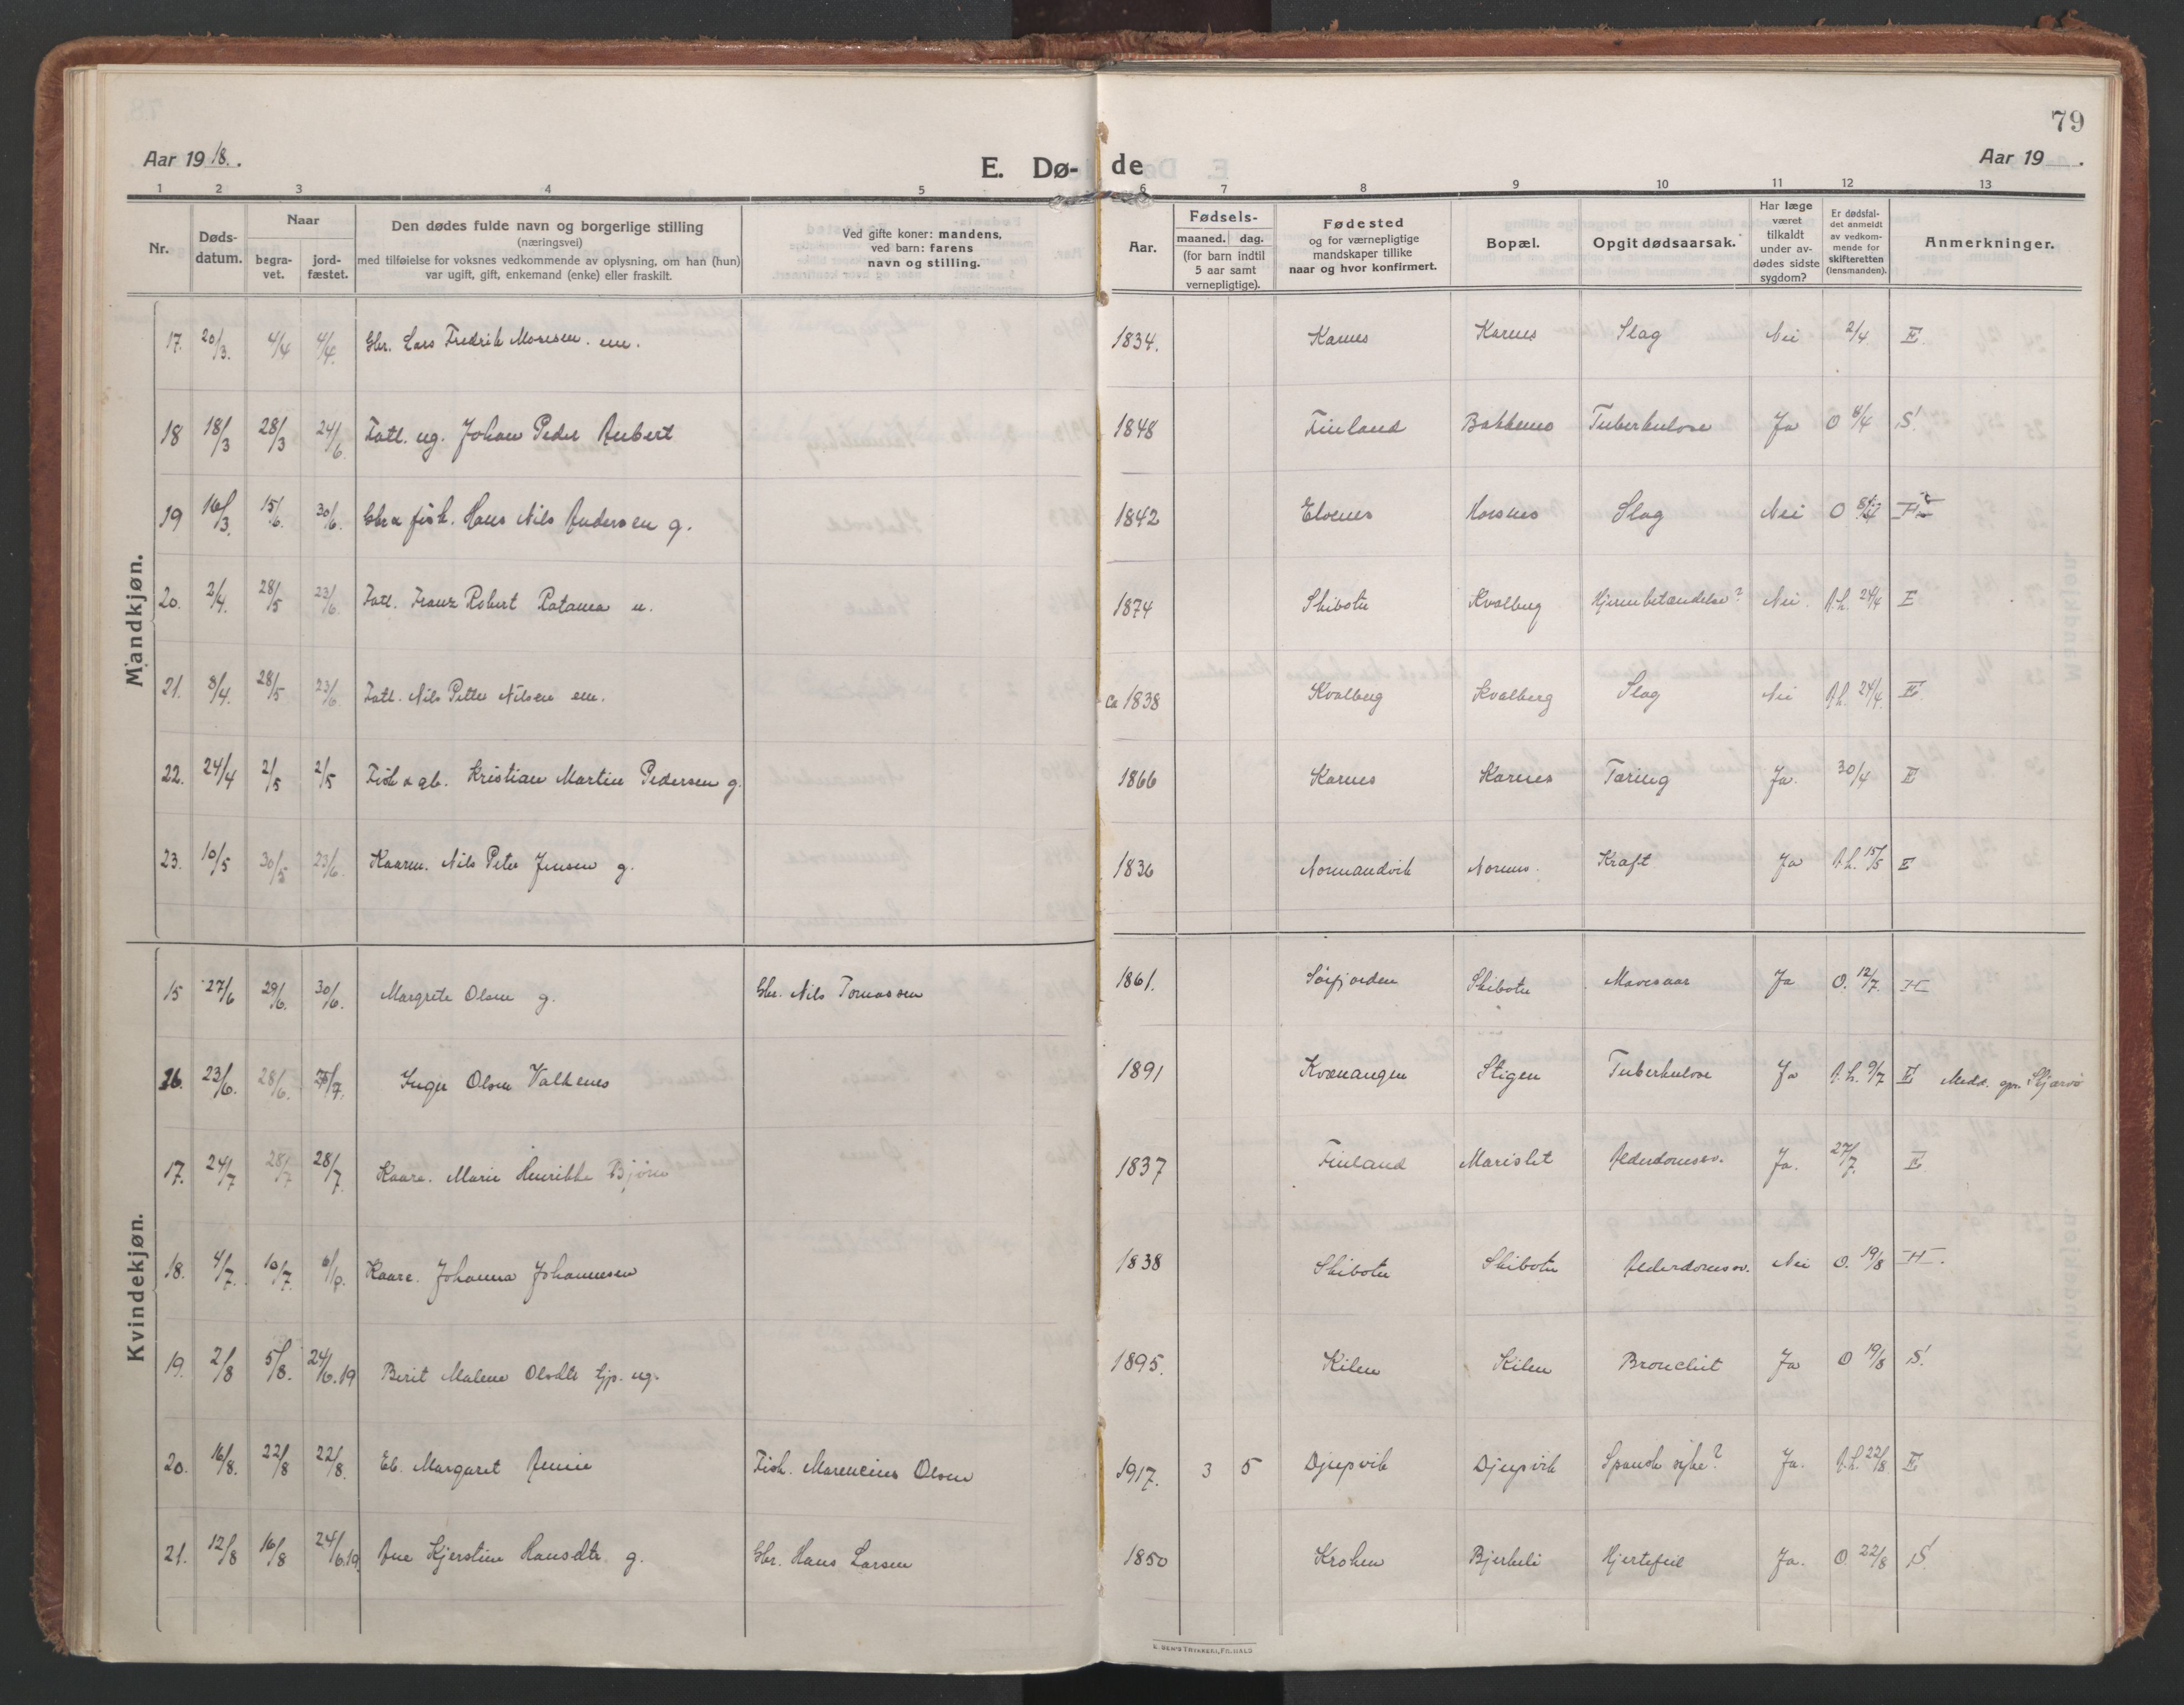 79
Aar 1918.
E. Dø-
de
Aar 19 .
1 2 3 4 5 6 7 8 9 10 11 12 13
Nr.
Døds-
datum.
Naar
begra-
vet.
jord-
fæstet.
Den dødes fulde navn og borgerlige stilling
(næringsvei)
med tilføielse for voksnes vedkommende av oplysning, om han (hun)
var ugift, gift, enkemand (enke) eller fraskilt.
Ved gifte koner: mandens,
ved barn: farens
navn og stilling.
Aar.
Fødsels-
maaned. dag.
(for barn indtil
5 aar samt
vernepligtige).
Fødested
og for værnepligtige
mandskaper tillike
naar og hvor konfirmert.
Bopæl.
Opgit dødsaarsak.
Har læge
været
tilkaldt
under av-
dødes sidste
sygdom?
Er dødsfal-
det anmeldt
av vedkom-
mende for
skifteretten
(lensmanden).
Anmerkninger.
Mandkjøn.
17. 20/3. 4/4 4/4. Gbr. Lars Fredrik Monsen. em. 1834. Karnes Karnes Slag Nei 2/4 E.
18 18/3 28/3 24/6. Fatt. ug. Johan Peder Aubert 1848 Finland Bakkemo Tuberkulose Ja O 6/4 S.
19 16/3. 15/6. 30/6. Gbr & fisk. Hans Nils Andersen g. 1842 Elvenes Horsnes Slag Nei O
20. 2/4. 28/5 23/6. Fatt. Franz Robert Ratama u. 1874 Skibotn Kvalberg Hjernebetændelse? Nei. A.L. 24/4 E
21. 8/4. 28/5 23/6. Fatt. Nils Petter Nilsen em. ca 1838 Kvalberg Kvalberg Slag Nei A.L. 24/4. E.
22. 24/4 2/5 2/5 Fisk & gb. Kristian Martin Pedersen g. 1866 Karnes Karnes Taring Ja. 30/4 E
23. 10/5 30/5 23/6. Kaarm. Nils Peter Jensen g. 1836 Normandvik Nornes. Kræft Ja A.L. 15/5 E
Kvindekjøn.
15 27/6 29/6. 30/6. Margrete Olsen g. Gbr. Nils Tomassen 1861. Sørfjorden Skibotn Mavesaar Ja O. 12/7. H
16. 23/6. 28/6. 25/7. Inger Olsen Valkenes 1891 Kvænangen Stigen Tuberkulose Ja A.L. 9/7 E Medd. spr. Skjærvø
17. 24/7 28/7 28/7. Kaare. Marie Henrikke Bjørn 1837 Finland Marislet Alderdomssv. Ja. 27/7. E
18. 4/7. 10/7. Kaare. Johanna Johannesen 1838 Skibotn Skibotn Alderdomssv. Nei O. 19/8 H.
19. 2/8 5/8. 24/6.19 Berit Malene Olsdtr tjp. ug. 1895. Kilen Kilen Bronchit Ja O 19/8 S.
20. 16/8. 22/8 22/8. Eb. Margaret Annie Fisk. Marencius Olsen 1917. 3 5 Djupvik Djupvik Spansk syke? Ja. A.L. 22/8 E
21. 12/8 16/8 24/6.19. Ane Kjerstine Hansdtr. g. Gbr. Hans Larsen 1850 Kroken Bjerkeli Hjertefeil Ja. O. 22/8 S.
E. SEM'S TRYKKERI, FR.HALD